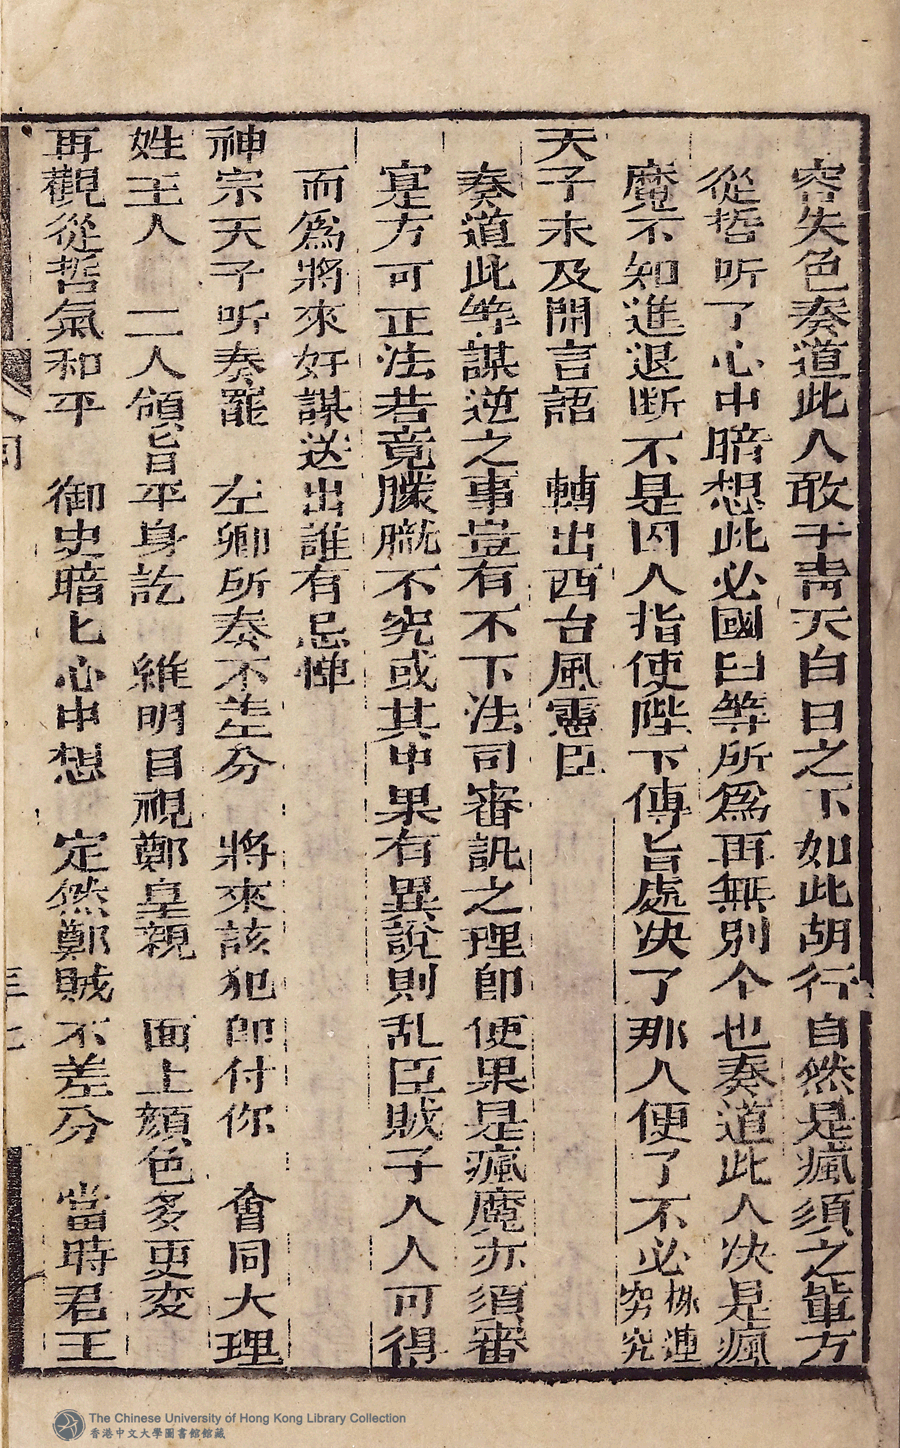 容失色奏道此人敢于青天白日之下如此胡行自然是瘋須之輩方
從哲听了心中暗想此必國曰等所爲再無別个也奏道此人决是瘋
魔不知進退断不是因人指使陛下傳旨處决了那人便了不必株連窮究
天子未及開言語　轉出西台風憲臣
奏道此等謀逆之事豈有不下法司審訊之理即便果是瘋魔亦須審
寔方可正法若竟朦朧不究或其中果有異說則乱臣賊子人人可得
而爲將來奸謀送出誰有忌惮
神宗天子听奏罷　左卿所奏不差分　將來該犯即付你　會同大理
姓王人　二人領旨平身訖　維明目視鄭皇親　面上顔色多更変
再觀從哲氣和平　御史暗匕心中想　定然鄭賊不差分　當時君王
The Chinese University of Hong Kong Library Collection
香港中文大學圖書館館藏